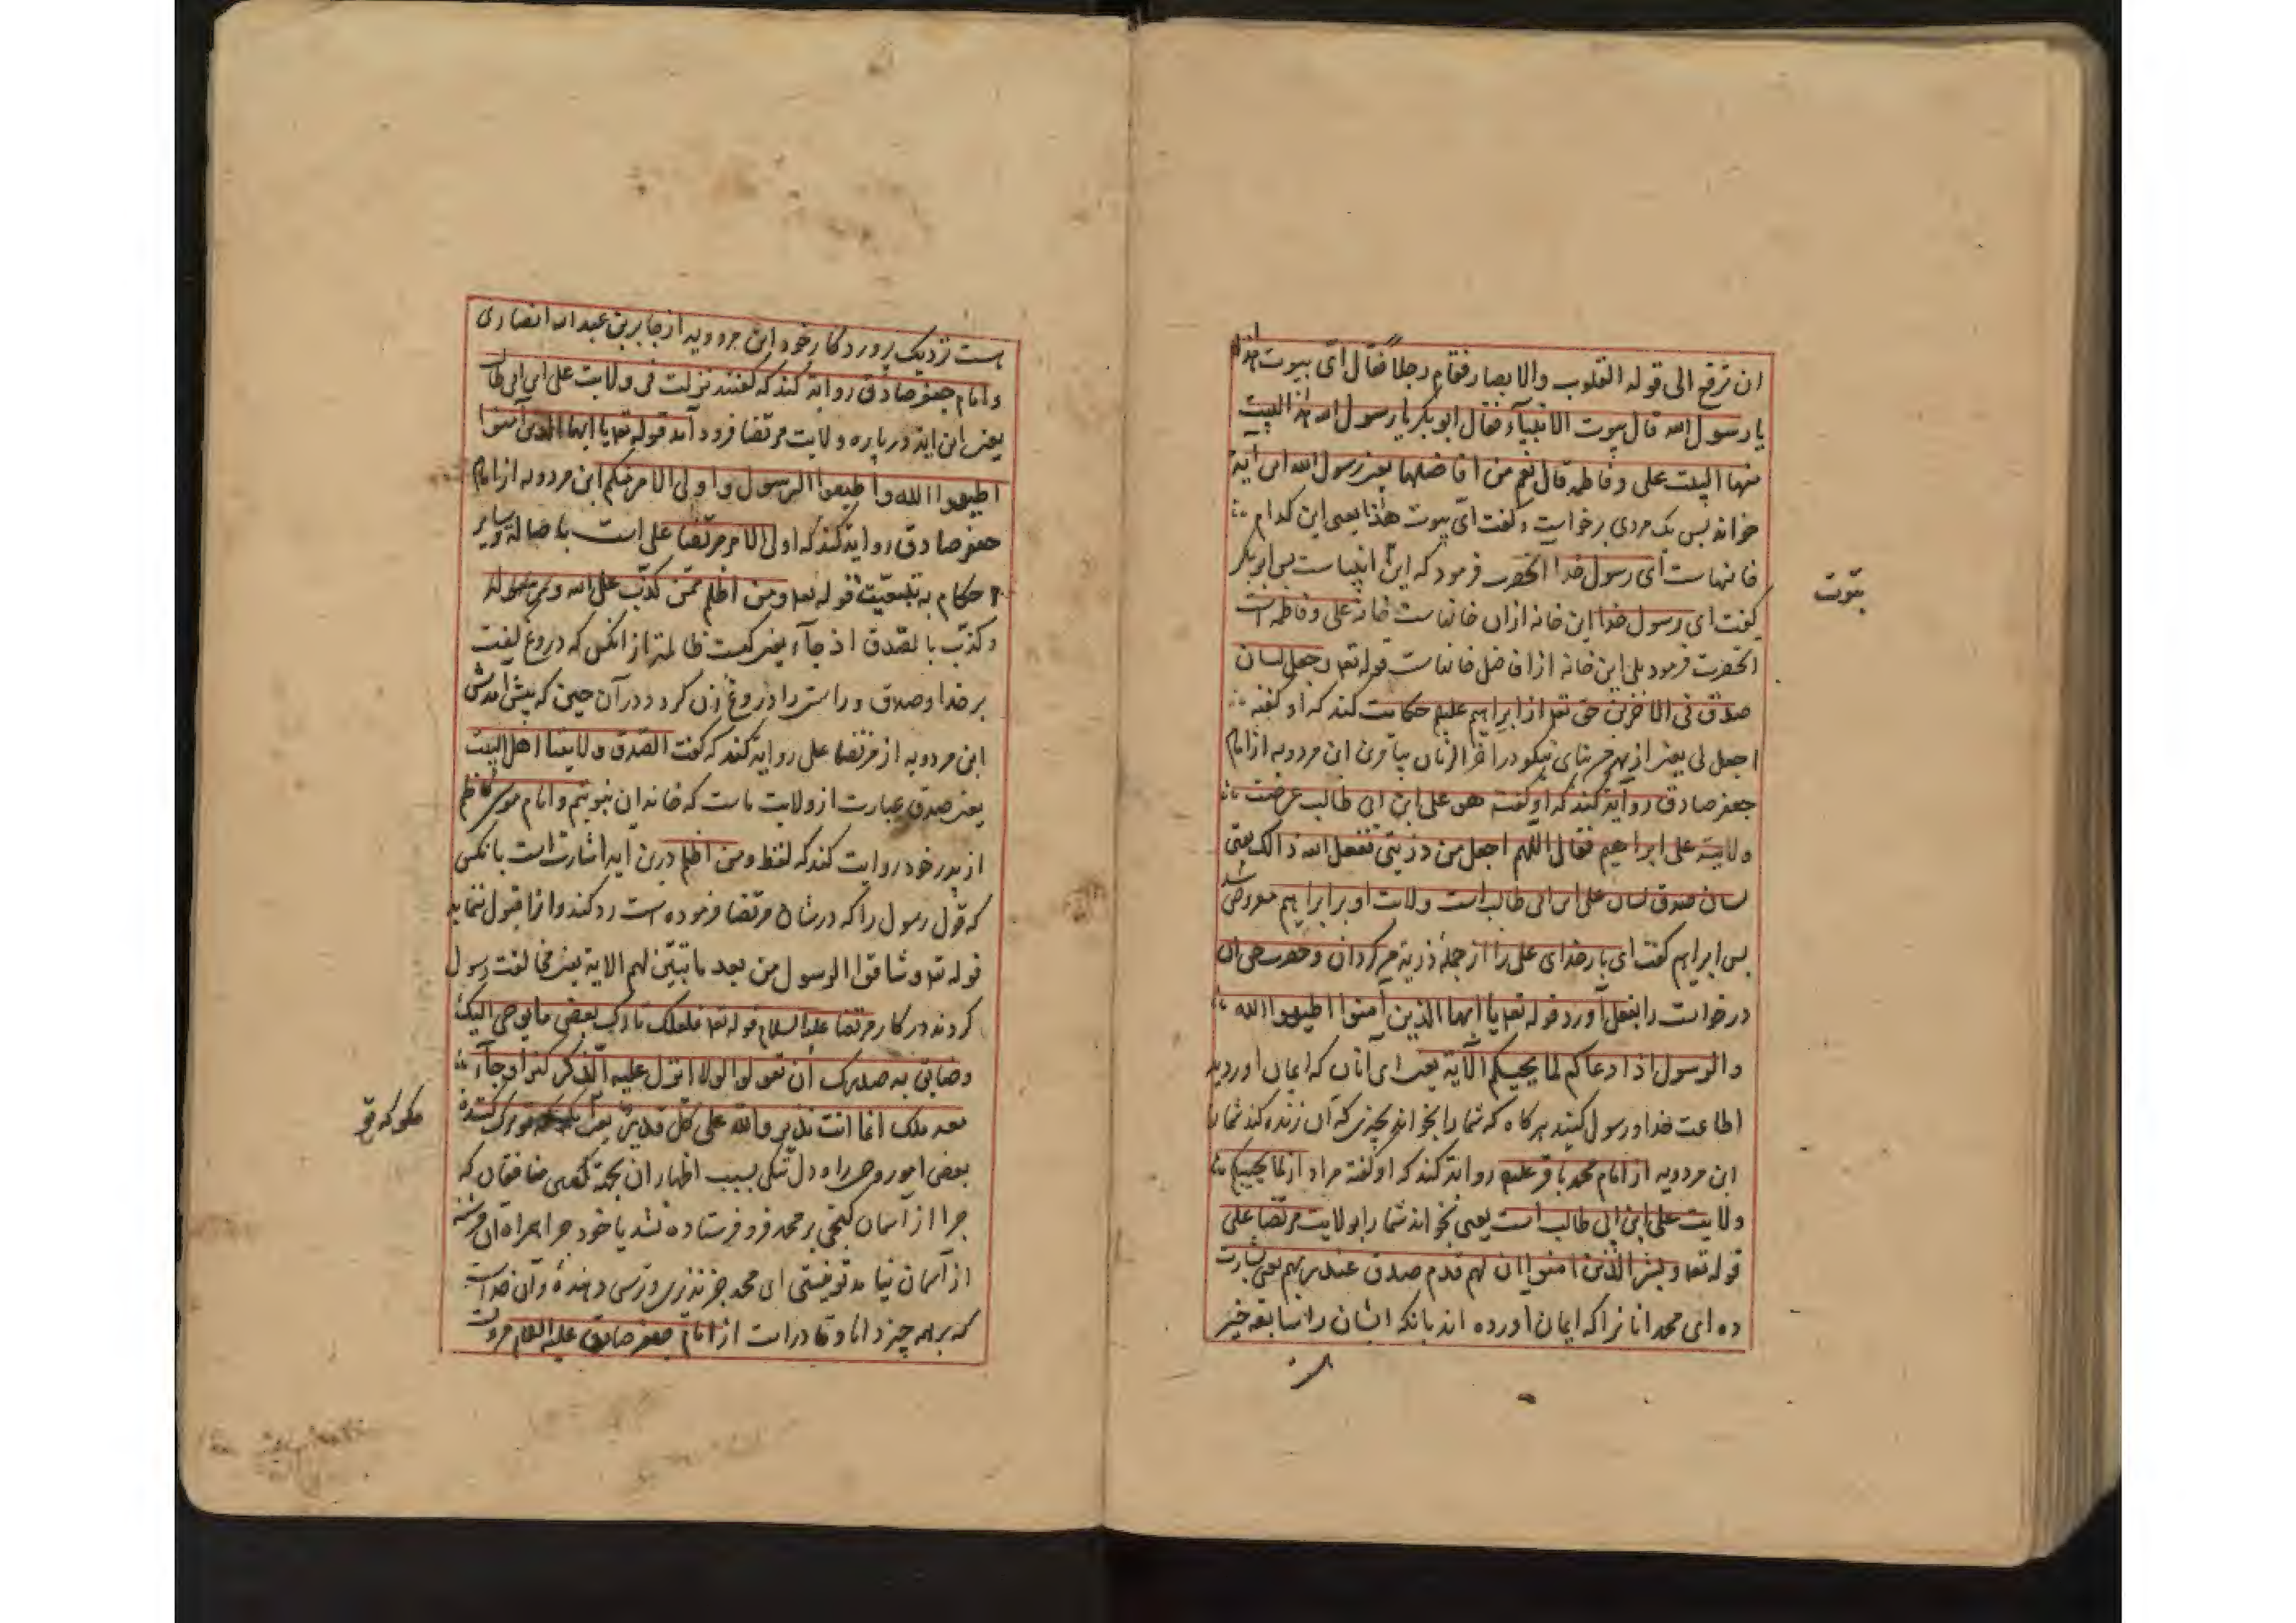 ان ترفع الی قوله القلوب والابصار فقام رجلاً فقال ایّ بیوت هذا
یا رسول الله قال بیوت الانبیآء فقال ابو بکر یا رسول الله هذا البیت
منها البیت علی و فاطمه قال نعم من افاضلها یعنی رسول الله این آیه
خوانه پس یک مردی برخواست و گفت ایّ بیوت هذا یعنی این کدام
خانهاست ای رسول خدا انحضرت فرمود که این انبیاست پس ابو بکر
بیوت
گفت ای رسول خدا این خانه ازان خانهاست خانهٔ علی و فاطمه است
انحضرت فرمود بلی این خانه از افاضل خانهاست قوله تعه وجعل لسان
صدق فی الاخرین حق تعه از ابراهیم علیه حکایت کند که او گفته
اجعل لی یعنی از بهر من ثنای نیکو در آخر الزمان بیافرین ابن مردویه از امام
جعفر صادق روایة کند که او گفت هو علی ابن ابی طالب عرضت
ولایته علی ابراهیم فقال اللهم اجعل من ذریتی ففعل الله ذالک یعنی
لسان صدق لسان علی ابن ابی طالب است ولایت او بر ابراهیم معروض شد
پس ابراهیم گفت ای بار خدای علی را از جملهٔ ذریه من گردان و حضرت حق ان
درخواست را بفعل آورد قوله تعه یا ایها الذین آمنوا اطیعوا الله
والرسول اذا دعاکم لما یحییکم الآیة یعنی ای آنان که ایمان اوردید
اطاعت خدا و رسول کنید هر کاه که شما را بخواند بچیزی که آن زنده کند شما را
ابن مردویه از امام محمد باقر علیه روایة کند که او گفته مراد از لما یحییکم
ولایت علی ابن ابی طالب است یعنی بخواند شما را بولایت مرتضا علی
قوله تعه و بشر الذین امنوا ان لهم قدم صدق عند ربهم یعنی بشارت
ده ای محمد انانرا که ایمان اورده اند بانکه ایشان را سابقه خیر
هست نزدیک پروردکار خود ابن مردویه از جابر بن عبد الله انصاری
و امام جعفر صادق روایة کند که گفتند نزلت فی ولایت علی ابن ابی طالب
یعنی این ایة درباره ولایت مرتضا فرود آمد قوله تعه یا ایها الذین آمنوا
اطیعوا الله واطیعوا الرسول و اولی الامر منکم ابن مردویه از امام
جعفر صادق روایة کند که اولی الامر مرتضا علی است باصالة و سایر
حکام به تبعیّت قوله تعه ومن اظلم ممّن کذّب علی الله
وکذّب بالصّدق اذ جآءه یعنی کیست ظالمتر از انکس که دروغ گفت
بر خدا و صدق و راستی را دروغ زن کرد در آن حین که پیش امدش
ابن مردویه از مرتضا علی روایة کند که گفت الصّدق ولایتنا اهل البیت
یعنی صدق عبارت از ولایت ماست که خاندان نبوتیم و امام موسی کاظم
از پدر خود روایت کند که لفظ ومن اظلم درین آیه اشارت است بانکس
که قول رسول را که در شان مرتضا فرموده است رد کند و انرا قبول ننماید
قوله تعه وشاقوا الرسول من بعد ما تبیّن لهم الایة یعنی مخالفت رسول
کردند در کار مرتضا علیه السلام قوله تعه فلعلک تارک بعض ما یوحی الیک
وضائق به صدرک أن یقولوا لولا انزل علیه الذکر کنز او جآء
معه ملک انما انت نذیر والله علی کل قدیر یعنی ترک کننده
بعض امور وحی را و دل تنکی بسبب اظهار ان بجهة گفتن منافقان که
چرا از آسمان گنجی بر محمد فرو فرستاده نشد یا خود چرا همراه ان فرشته
از آسمان نیامد تو نیستی ای محمد جز نذری و ترسی دهنده و آن خداست
که بر همه چیز دانا و قادر است از امام جعفر صادق علیه السلام مرویست